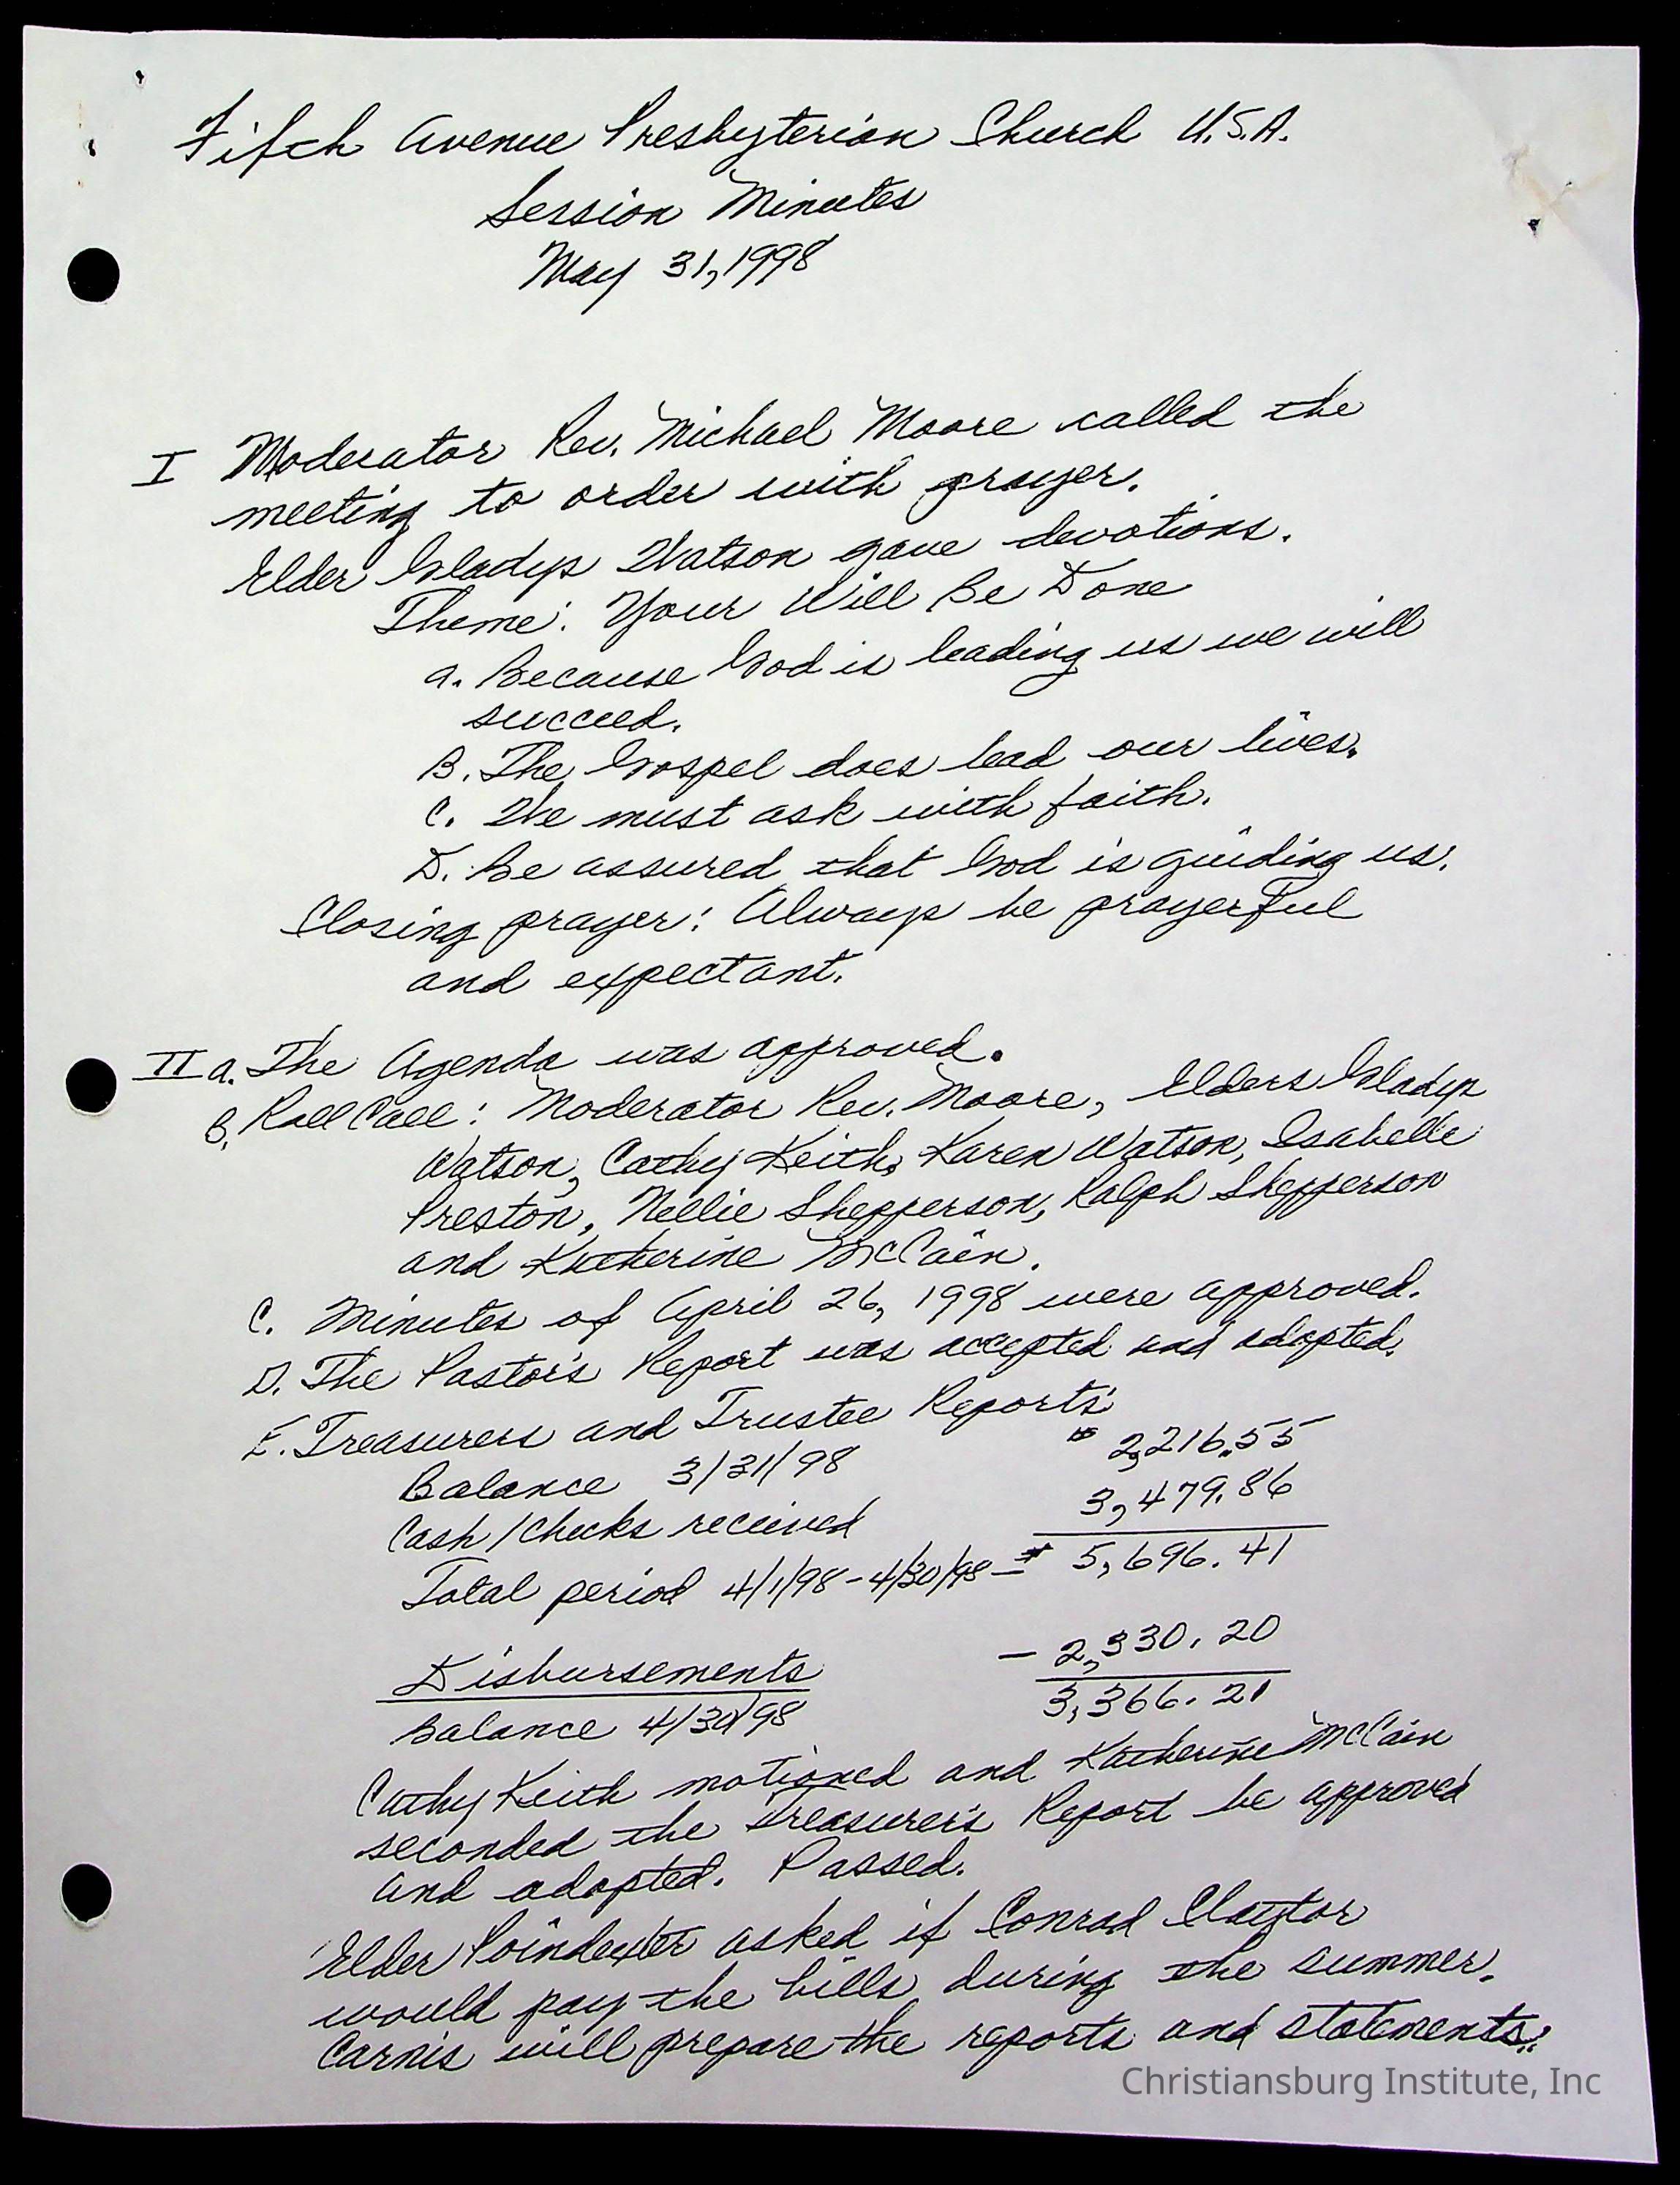 Fifth Avenue Presbyterian Church U.S.A.
Session Minutes
May 31, 1998
I Moderator Rev. Michael Moore called the
meeting to order with prayer.
Elder Gladys Watson gave devotions.
Theme: Your Will Be Done
a. Because God is leading us we will
succeed.
B. The Gospel does lead our lives.
C. We must ask with faith.
D. Be assured that God is guiding us.
Closing prayer: Always be prayerful
and expectant.
II a. The Agenda was approved.
B. Roll Call: Moderator Rev. Moore, Elders Gladys
Watson, Cathy Keith, Karen Watson, Isabelle
Preston, Nellie Shepperson, Ralph Shepperson
and Katherine McCain.
C. Minutes of April 26, 1998 were approved.
D. The Pastor's Report was accepted and adopted.
E. Treasurers and Trustee Reports
Balance 3/31/98 $ 2,216.55
Cash/Checks received 3,479.86
Total period 4/1/98-4/30/98 - $ 5,696.41
Disbursements - 2,330.20
Balance 4/30/98 3,366.21
Cathy Keith motioned and Katherine McCain
seconded the Treasurer's Report be approved
and adopted. Passed.
Elder Poindexter asked if Conrad Claytor
would pay the bills during the summer.
Carnis will prepare the reports and statements.
Christiansburg Institute, Inc